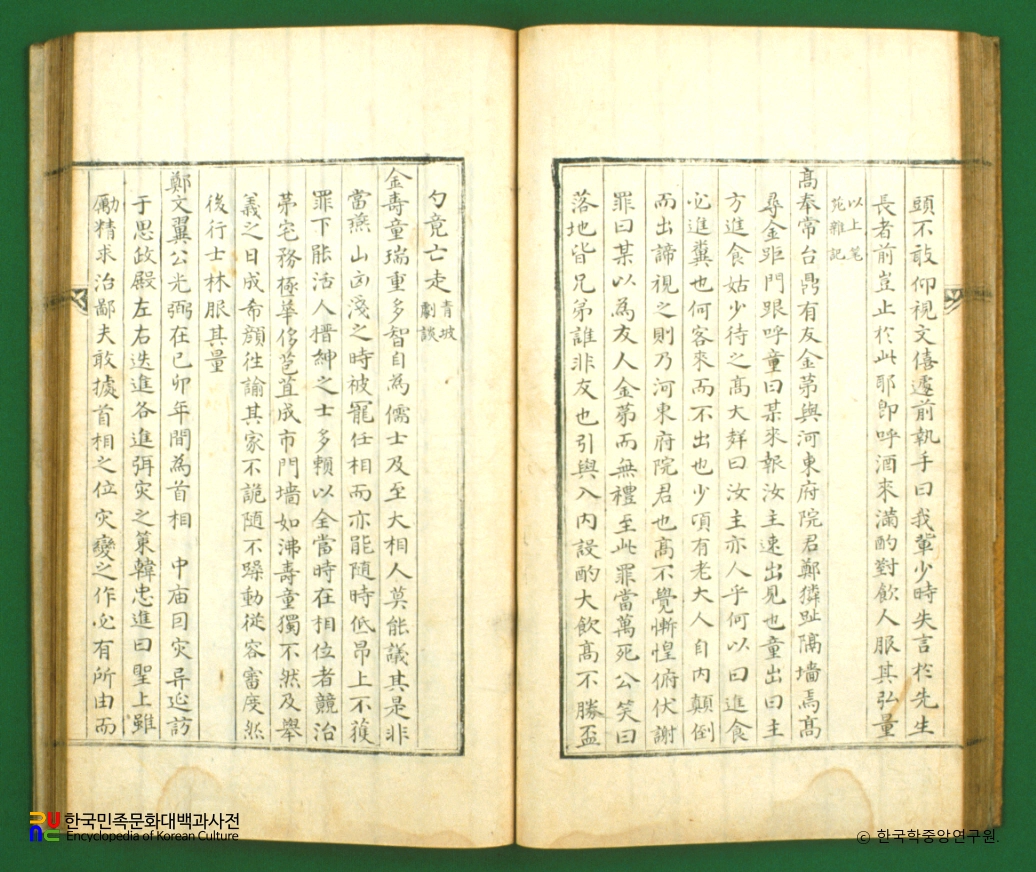 頭不敢仰視文僖遽前執手曰我輩少時失言於先生
長者前豈止於此耶卽呼酒來滿酌對飮人服其弘量
以上笔
苑雜記
高奉常台鼎有友金茀與河東府院君鄭獜趾隔墻焉高
尋金距門踞呼童曰某來報汝主速出見也童出曰主
方進食姑少待之高大辞曰汝主亦人乎何以曰進食
必進糞也何客來而不出也少頃有老大人自內顚倒
而出諦視之則乃河東府院君也高不覺慚惶俯伏謝
罪曰某以為友人金茀而無禮至此罪當萬死公笑曰
落地皆兄弟誰非友也引與入內設酌大飮高不勝盃
勺竟亡走
青坡
劇談
金壽童瑞重多智自為儒士及至大相人莫能議其是非
當燕山凶淺之時被寵任相而亦能随時低昂上不獲
罪下能活人搢紳之士多賴以全當時在相位者競治
苐宅務極華侈苞苴成市門墻如沸壽童獨不然及舉
義之日成希顔徃諭其家不詭随不躁動從容審度然
後行士林服其量
鄭文翼公光弼在己卯年間為首相 中庙因灾异延訪
于思政殿左右迭進各進弭灾之策韓忠進曰聖上雖
勵精求治鄙夫敢據首相之位灾變之作必有所由而
한국민족문화대백과사전
Encyclopedia of Korean Culture
© 한국학중앙연구원.